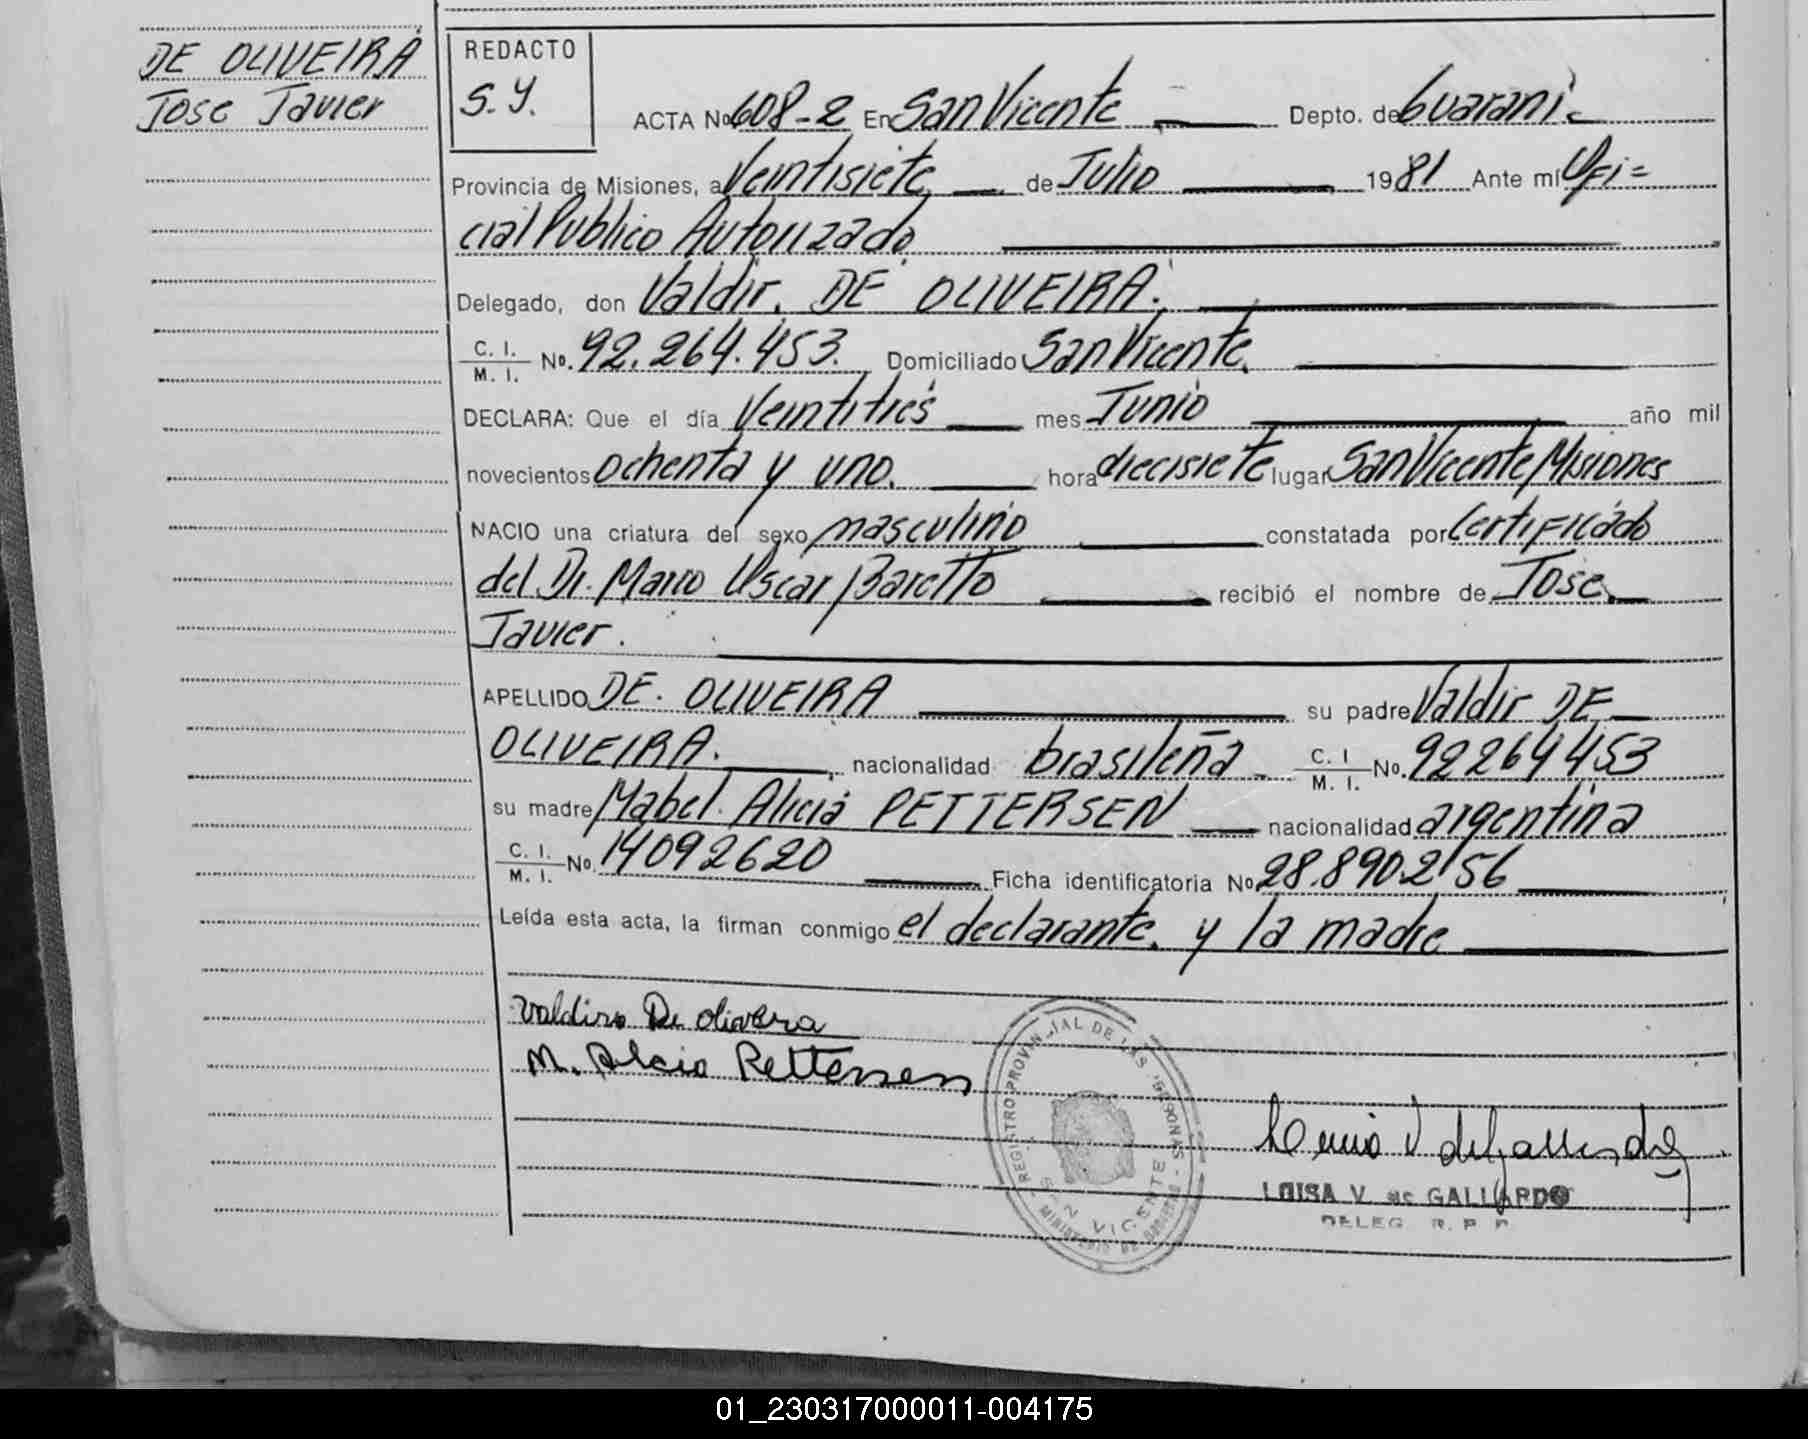 DE OLIVEIRA
Jose Javier
REDACTO
S. Y.
ACTA No 608-2 En San Vicente Depto. de Guarani
Provincia de Misiones, a Veintisiete de Julio 1981 Ante mi Ofi=
cial Publico Autorizado
Delegado, don Valdir. DE OLIVEIRA.
C. I.
M. I. No. 92.264.453. Domiciliado San Vicente.
DECLARA: Que el día Veintitres mes Junio año mil
novecientos ochenta y uno. hora diecisiete lugar San Vicente Misiones
NACIO una criatura del sexo masculino constatada por Certificado
del Dr. Mario Oscar Baretto recibió el nombre de Jose
Javier.
APELLIDO DE. OLIVEIRA su padre Valdir DE
OLIVEIRA. nacionalidad brasileña C. I
M. I. No. 92264453
su madre Mabel. Alicia PETTERSEN nacionalidad argentina
C. I.
M. I. No. 14092620 Ficha identificatoria No 28.890.256
Leída esta acta, la firman conmigo el declarante. y la madre
Valdiro De olivera
M. Alcia Pettersen
REGISTRO PROVINCIAL DE LAS PERSONAS
SAN VICENTE
MINISTERIO DE
LUISA V. de GALLARDO
DELEG. R. P. P.
01_230317000011-004175